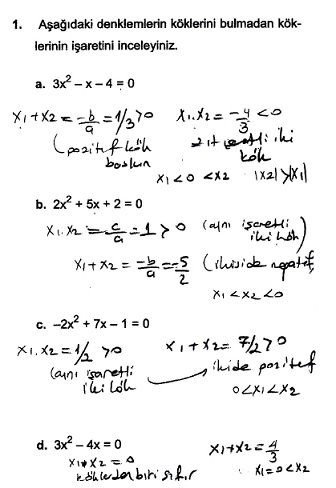 1. Aşağıdaki denklemlerin köklerini bulmadan kök-
lerinin işaretini inceleyiniz.
a. 3x² – x – 4 = 0
x₁+x₂ = -b/a = 1/3 > 0
x₁.x₂ = -4/3 < 0
(pozitif kök
baskın
zıt işaretli iki
kök
x₁<0 <x₂ |x₂|>|x₁|
b. 2x² + 5x + 2 = 0
x₁.x₂ = c/a = 1 > 0 (aynı işaretli
iki kök)
x₁+x₂ = -b/a = -5/2 (ikiside negatif)
x₁<x₂<0
c. –2x² + 7x – 1 = 0
x₁.x₂ = 1/2 > 0
x₁+x₂ = 7/2 > 0
(aynı işaretli
iki kök
ikide pozitif
0<x₁<x₂
d. 3x² – 4x = 0
x₁*x₂ = 0
x₁+x₂ = 4/3
köklerden biri sıfır
x₁=0<x₂